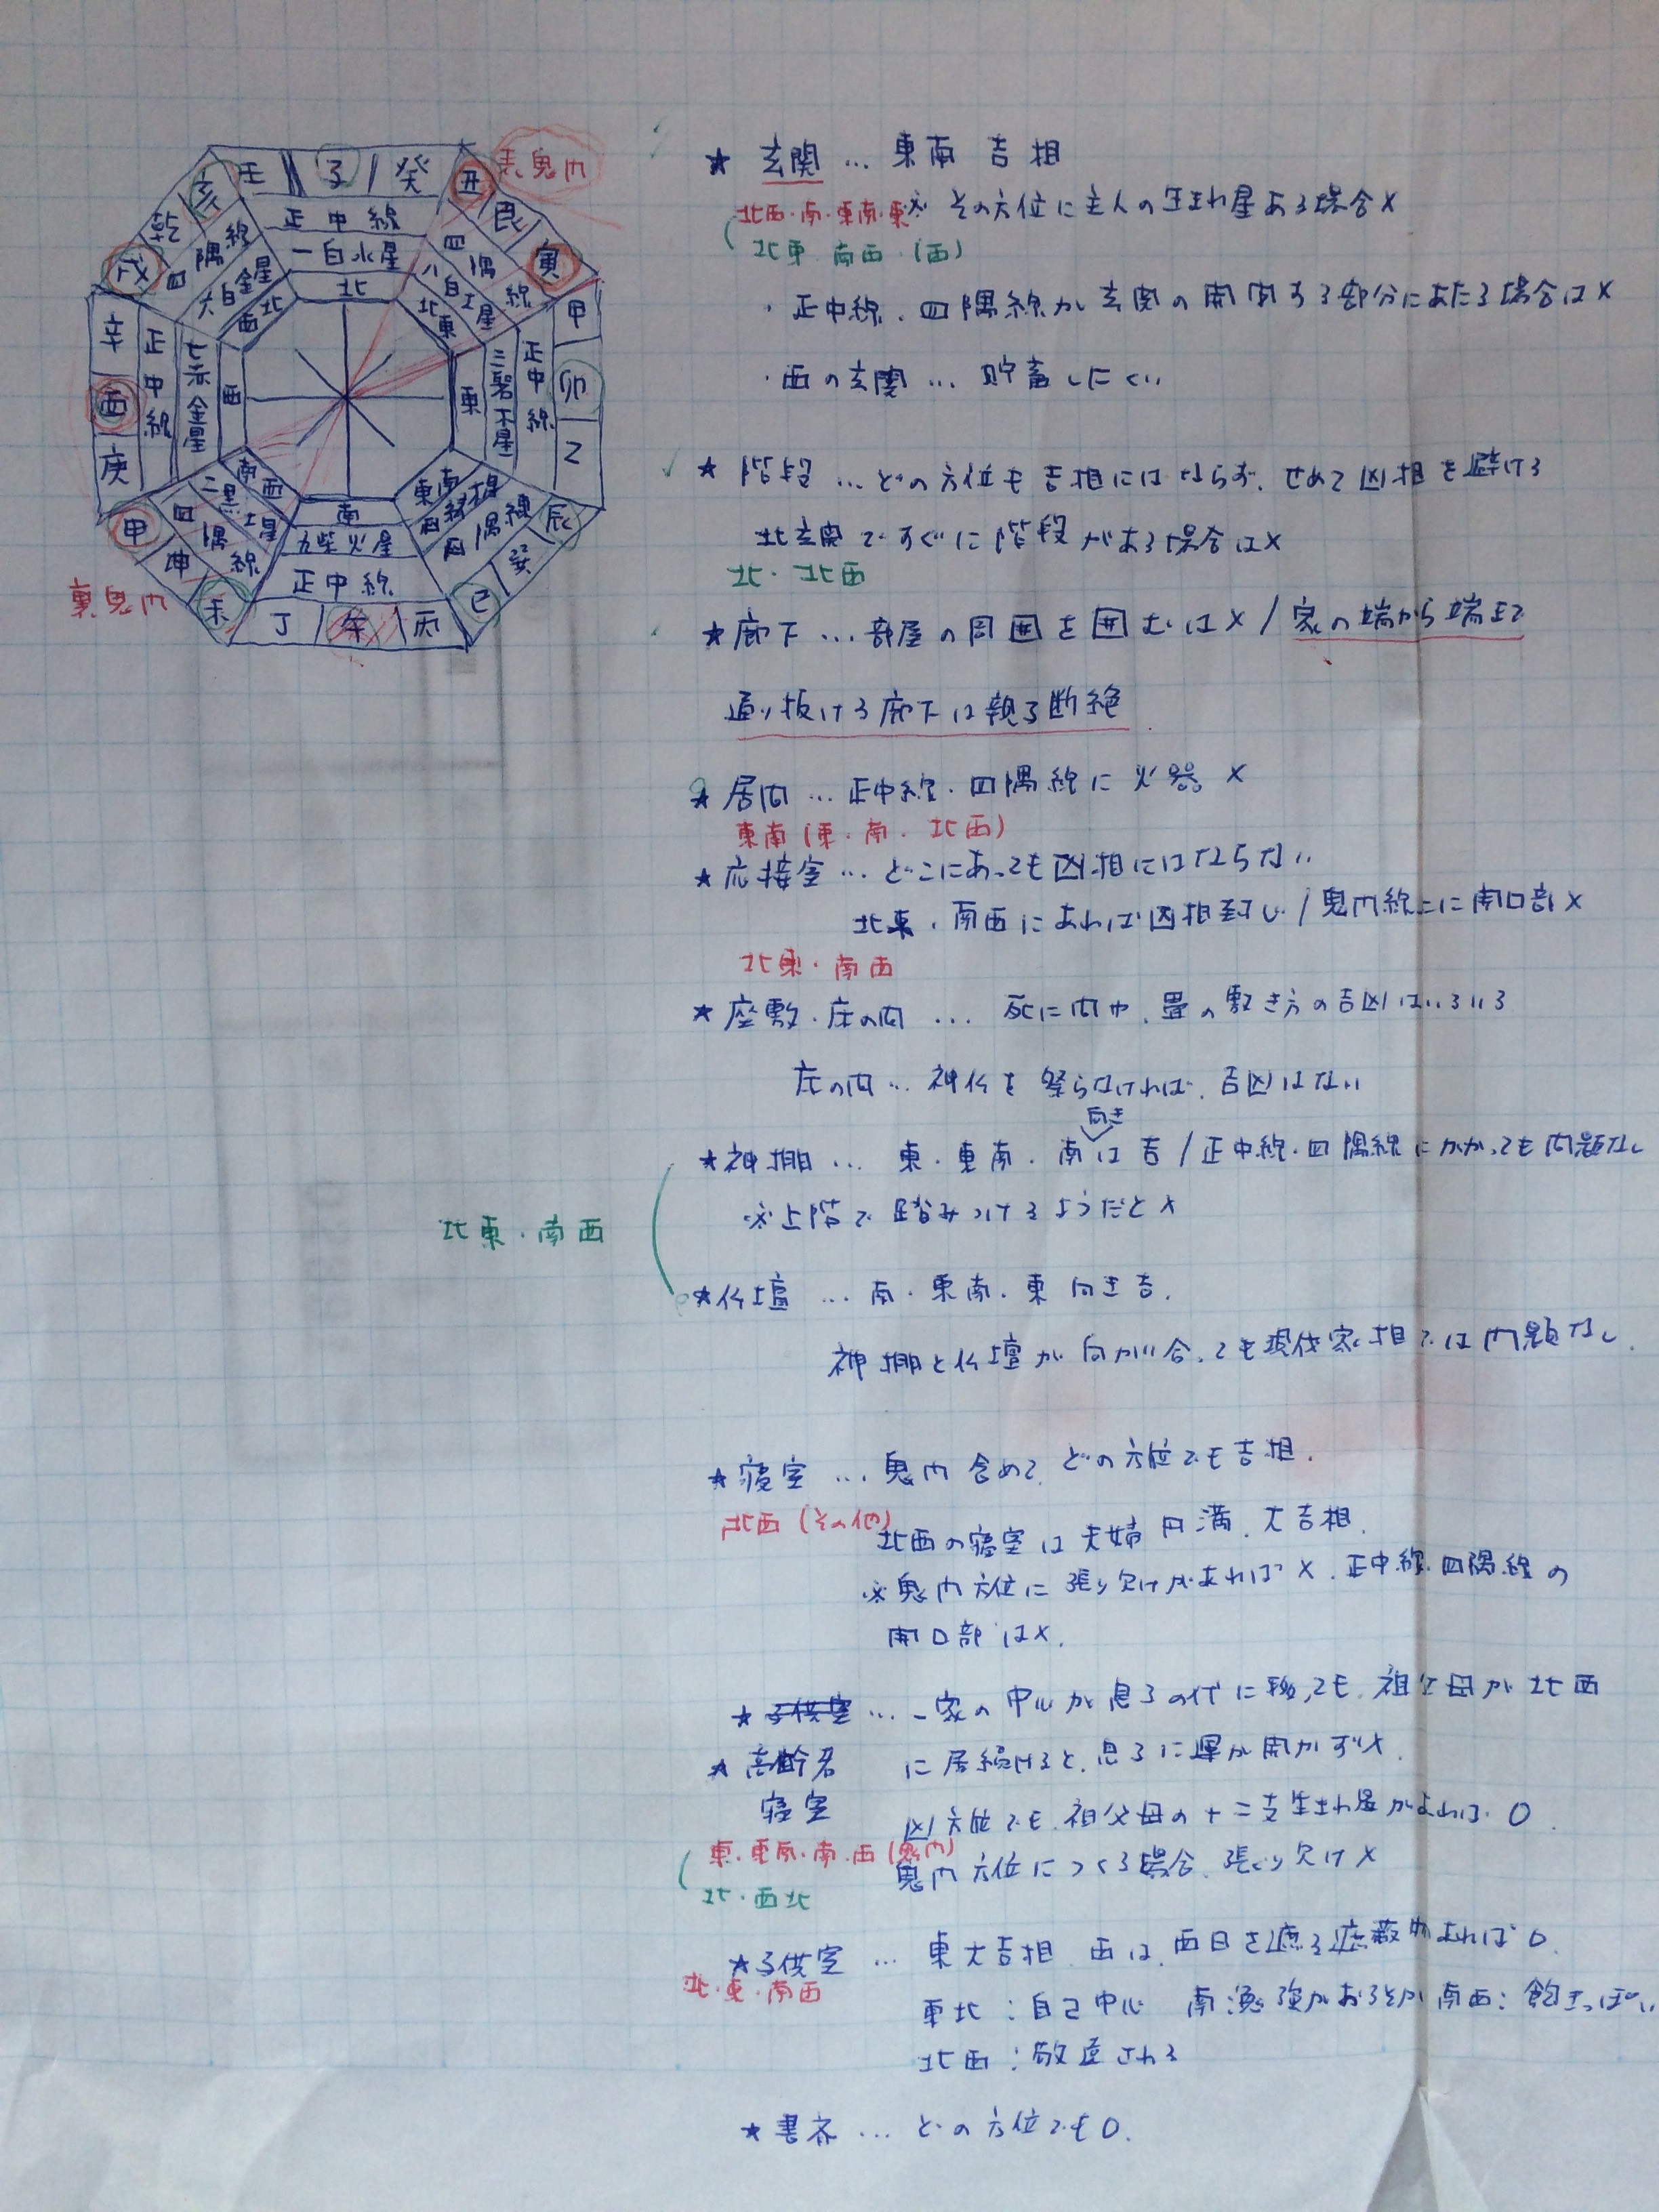 壬 子 癸
丑 艮 寅
表鬼門
甲 卯 乙
辰 巳
丙 丁
未 坤 甲
裏鬼門
庚 酉 辛
戌 乾 亥
正中線
一白水星
北
四隅線
八白土星
北東
正中線
三碧木星
東
四隅線
東南
正中線
九紫火星
南
四隅線
二黒土星
南西
正中線
七赤金星
西
四隅線
六白金星
西北
★ 玄関 … 東南 吉相
北西・南・東南・東
※ その方位に主人の生まれ星ある場合×
北東 南西 (西)
・正中線、四隅線が玄関の開閉する部分にあたる場合は×
・西の玄関 … 貯蓄しにくい
★ 階段 … どの方位も吉相にはならず、せめて凶相を避ける
北玄関ですぐに階段がある場合は×
北・北西
★ 廊下 … 部屋の周囲を囲むは× / 家の端から端まで
通り抜ける廊下は親子断絶
★ 居間 … 正中線・四隅線に火器 ×
東南 (東・南・北西)
★ 応接室 … どこにあっても凶相にはならない
北東・南西にあれば凶相封じ / 鬼門線上に開口部×
北東・南西
★ 座敷・床の間 … 死に間や、畳の敷き方の吉凶はいろいろ
床の間 … 神仏を祭らなければ、吉凶はない
向き
★ 神棚 … 東・東南・南は吉 / 正中線・四隅線にかかっても問題なし
※ 上階で踏みつけるようだと×
北東・南西
★ 仏壇 … 南・東南・東 向き吉.
神棚と仏壇が向かい合っても現代家相では問題なし.
★ 寝室 … 鬼門含めて、どの方位でも吉相.
北西 (その他)
北西の寝室は夫婦円満、大吉相.
※ 鬼門方位に張り欠けがあれば×、正中線・四隅線の
開口部は×.
★ 子供室 … 一家の中心が息子の代に移っても、祖父母が北西
★ 高齢者 に居続けると、息子に運が開かず×.
寝室 凶方位でも、祖父母の十二支生まれ星がよければ○.
東・東南・南・西 (鬼門)
鬼門方位につくる場合、張り欠け×
北・西北
★ 子供室 … 東大吉相 西は、西日を遮る遮蔽物あれば○.
北・東・南西
東北：自己中心 南 勉強がおろそか 南西：飽きっぽい
北西：敬遠される
★ 書斎 … どの方位でも○.